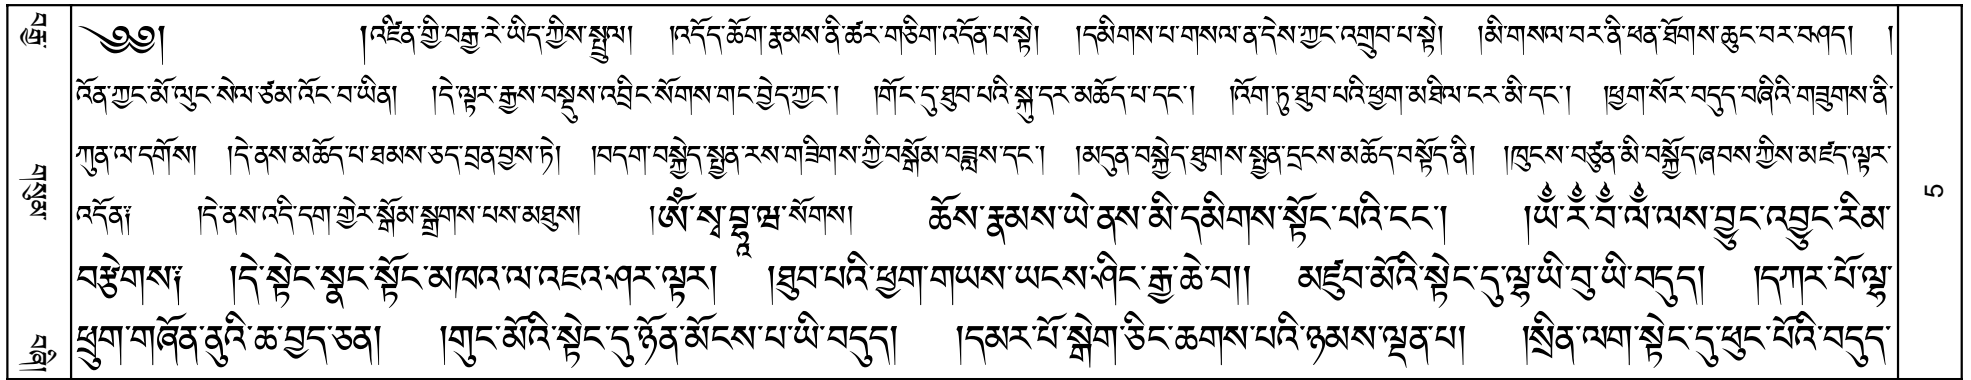 ༄༅། །འཛིན་གྱི་བརྒྱ་རེ་ཡིད་ཀྱིས་སྤྲུལ། །འདོད་ཆོག་རྣམས་ནི་ཚར་གཅིག་འདོན་པ་སྟེ། །དམིགས་པ་གསལ་ན་དེས་ཀྱང་འགྲུབ་པ་སྟེ། །མི་གསལ་བར་ནི་ཕན་ཐོགས་ཆུང་བར་བཤད། །
འོན་ཀྱང་མོ་ལུང་སེལ་ཙམ་འོང་བ་ཡིན། །དེ་ལྟར་རྒྱས་བསྡུས་འབྲིང་སོགས་གང་བྱེད་ཀྱང་། །གོང་དུ་ཐུབ་པའི་སྐུ་དར་མཆོད་པ་དང་། །འོག་ཏུ་ཐུབ་པའི་ཕྱག་མཐིལ་ངར་མི་དང་། །ཕྱག་སོར་བདུད་བཞིའི་གཟུགས་ནི་
ཀུན་ལ་དགོས། །དེ་ནས་མཆོད་པ་ཐམས་ཅད་བྲན་བྱས་ཏེ། །བདག་བསྐྱེད་སྤྱན་རས་གཟིགས་ཀྱི་བསྒོམ་བཟླས་དང་། །མདུན་བསྐྱེད་ཐུགས་སྤྱན་དྲངས་མཆོད་བསྟོད་ནི། །ཁུངས་བཙུན་མི་བསྐྱོད་ཞབས་ཀྱིས་མཛད་ལྟར་
འདོན༔ །དེ་ནས་འདི་དག་གྱེར་སྒོམ་སྒྲགས་པས་མཐུས། །ཨོཾ་སྭ་བྷཱ་ཝ་སོགས། ཆོས་རྣམས་ཡེ་ནས་མི་དམིགས་སྟོང་པའི་ངང་། །ཡྃ་རྃ་བྃ་ལྃ་ལས་བྱུང་འབྱུང་རིམ་
བརྩེགས༔ །དེ་སྟེང་སྣང་སྟོང་མཁའ་ལ་འཇའ་ཤར་ལྟར། །ཐུབ་པའི་ཕྱག་གཡས་ཡངས་ཤིང་རྒྱ་ཆེ་བ།། མཛུབ་མོའི་སྟེང་དུ་ལྷ་ཡི་བུ་ཡི་བདུད། །དཀར་པོ་ལྷ་
ཕྲུག་གཞོན་ནུའི་ཆ་བྱད་ཅན། །གུང་མོའི་སྟེང་དུ་ཉོན་མོངས་པ་ཡི་བདུད། །དམར་པོ་སྒེག་ཅིང་ཆགས་པའི་ཉམས་ལྡན་པ། །སྲིན་ལག་སྟེང་དུ་ཕུང་པོའི་བདུད་
གསུམ་
5